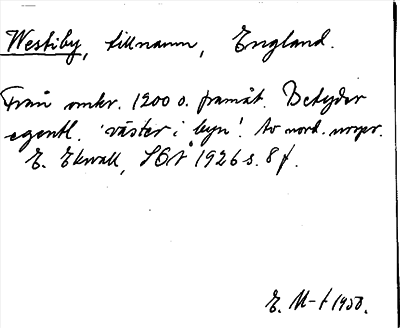 Westiby, tillnamn, England.
Från omkr. 1200 o. framåt. Betyder
egentl. 'väster i byn'. Av nord. urspr.
E. Ekwall, SOÅ 1926 s. 8 f.
E. M-t 1950.